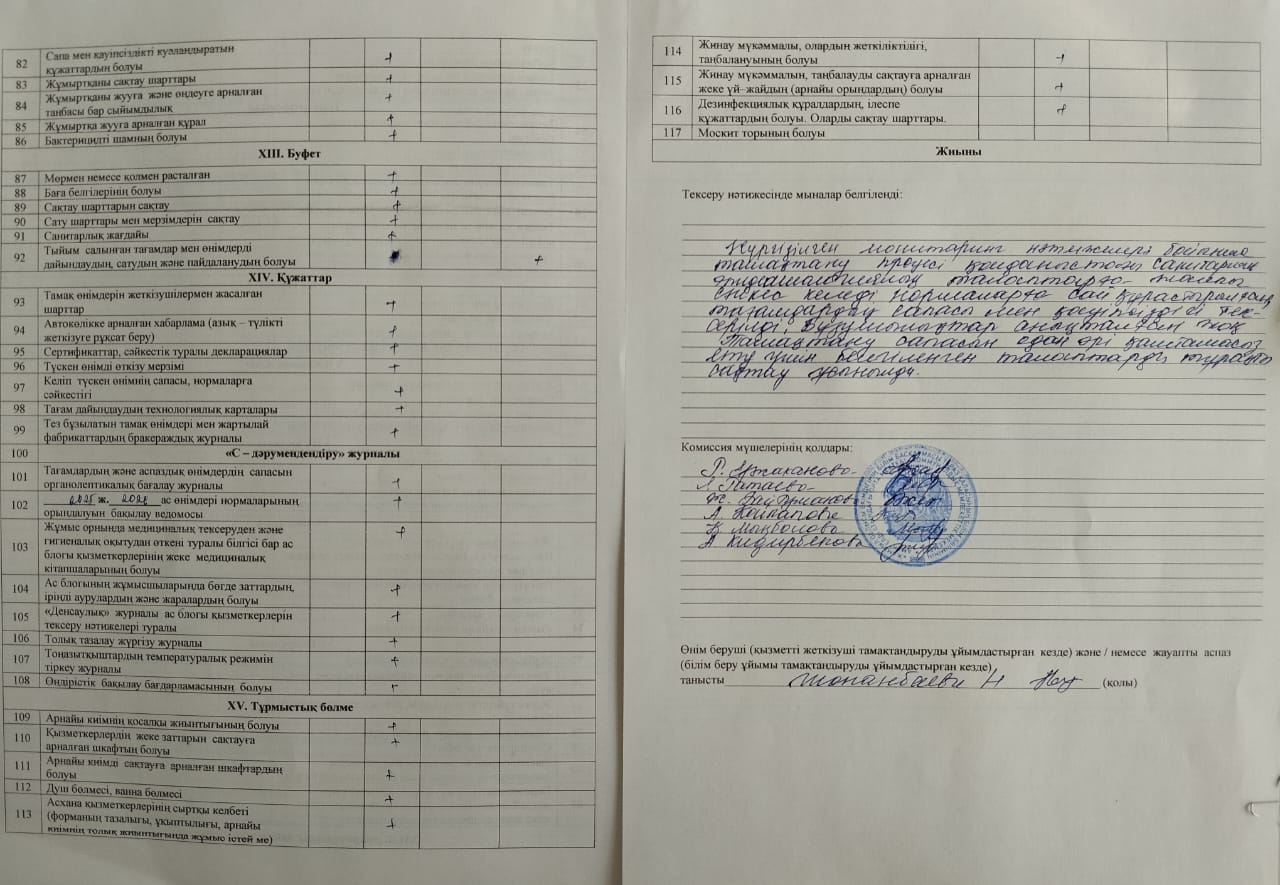 82 Сапа мен қауіпсіздікті куәландыратын
құжаттардың болуы +
83 Жұмыртқаны сақтау шарттары +
84 Жұмыртқаны жууға және өңдеуге арналған
таңбасы бар сыйымдылық +
85 Жұмыртқа жууға арналған құрал +
86 Бактерицидті шамның болуы +
XIII. Буфет
87 Мөрмен немесе қолмен расталған +
88 Баға белгілерінің болуы +
89 Сақтау шарттарын сақтау +
90 Сату шарттары мен мерзімдерін сақтау +
91 Санитарлық жағдайы +
92 Тыйым салынған тағамдар мен өнімдерді
дайындаудың, сатудың және пайдаланудың болуы +
XIV. Құжаттар
93 Тамақ өнімдерін жеткізушілермен жасалған
шарттар +
94 Автокөлікке арналған хабарлама (азық – түлікті
жеткізуге рұқсат беру) +
95 Сертификаттар, сәйкестік туралы декларациялар +
96 Түскен өнімді өткізу мерзімі +
97 Келіп түскен өнімнің сапасы, нормаларға
сәйкестігі +
98 Тағам дайындаудың технологиялық карталары +
99 Тез бұзылатын тамақ өнімдері мен жартылай
фабрикаттардың бракераждық журналы +
100 «С – дәрумендендіру» журналы
101 Тағамдардың және аспаздық өнімдердің сапасын
органолептикалық бағалау журналы +
102 2025 ж. ас өнімдері нормаларының
орындалуын бақылау ведомосы +
103 Жұмыс орнында медициналық тексеруден және
гигиеналық оқытудан өткені туралы білгісі бар ас
блогы қызметкерлерінің жеке медициналық
кітапшаларының болуы +
104 Ас блогының жұмысшыларында бөгде заттардың,
іріңді аурулардың және жаралардың болуы +
105 «Денсаулық» журналы ас блогы қызметкерлерін
тексеру нәтижелері туралы +
106 Толық тазалау жүргізу журналы +
107 Тоңазытқыштардың температуралық режимін
тіркеу журналы +
108 Өндірістік бақылау бағдарламасының болуы +
XV. Тұрмыстық бөлме
109 Арнайы киімнің қосалқы жиынтығының болуы +
110 Қызметкерлердің жеке заттарын сақтауға
арналған шкафтың болуы +
111 Арнайы киімді сақтауға арналған шкафтардың
болуы +
112 Душ бөлмесі, ванна бөлмесі +
113 Асхана қызметкерлерінің сыртқы келбеті
(форманың тазалығы, ұқыптылығы, арнайы
киімнің толық жиынтығында жұмыс істей ме) +
114 Жинау мүкәммалы, олардың жеткіліктілігі,
таңбалануының болуы +
115 Жинау мүкәммалын, таңбалауды сақтауға арналған
жеке үй–жайдың (арнайы орындардың) болуы +
116 Дезинфекциялық құралдардың, ілеспе
құжаттардың болуы. Оларды сақтау шарттары. +
117 Москит торының болуы
Жиыны
Тексеру нәтижесінде мыналар белгіленді:
Жүргізілген мониторинг нәтижелері бойынша
тамақтану процесі қолданыстағы санитарлық
эпидемиологиялық талаптарға жалпы
сәйкес келеді нормаларға сай құрастырылған,
тағамдардың сапасы мен қауіпсіздігі тек-
серілді. Бұзушылықтар анықталған жоқ
Тамақтану сапасын одан әрі қамтамасыз
ету үшін белгіленген талаптарды тұрақты
сақтау ұсынылды.
Комиссия мүшелерінің қолдары:
Өнім беруші (қызметті жеткізуші тамақтандыруды ұйымдастырған кезде) және / немесе жауапты аспаз
(білім беру ұйымы тамақтандыруды ұйымдастырған кезде)
танысты (қолы)